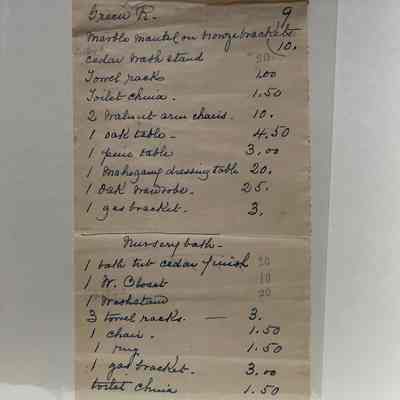 Green R. 9
Marble mantel on bronze brackets 10.
cedar wash stand 20
Towel racks 1.00
Toilet china. 1.50
2 Walnut arm chairs. 10.
1 oak table - 4.50
1 pine table 3.00
1 Mahogany dressing table 20.
1 Oak Wardrobe. 25.
1 gas bracket. 3.
Nursery bath -
1 bath tub cedar finish 20
1 W. Closet 10
1 Washstand 20
3 towel racks. — 3.
1 chair. 1.50
1 rug 1.50
1 gas bracket. 3.00
toilet china 1.50